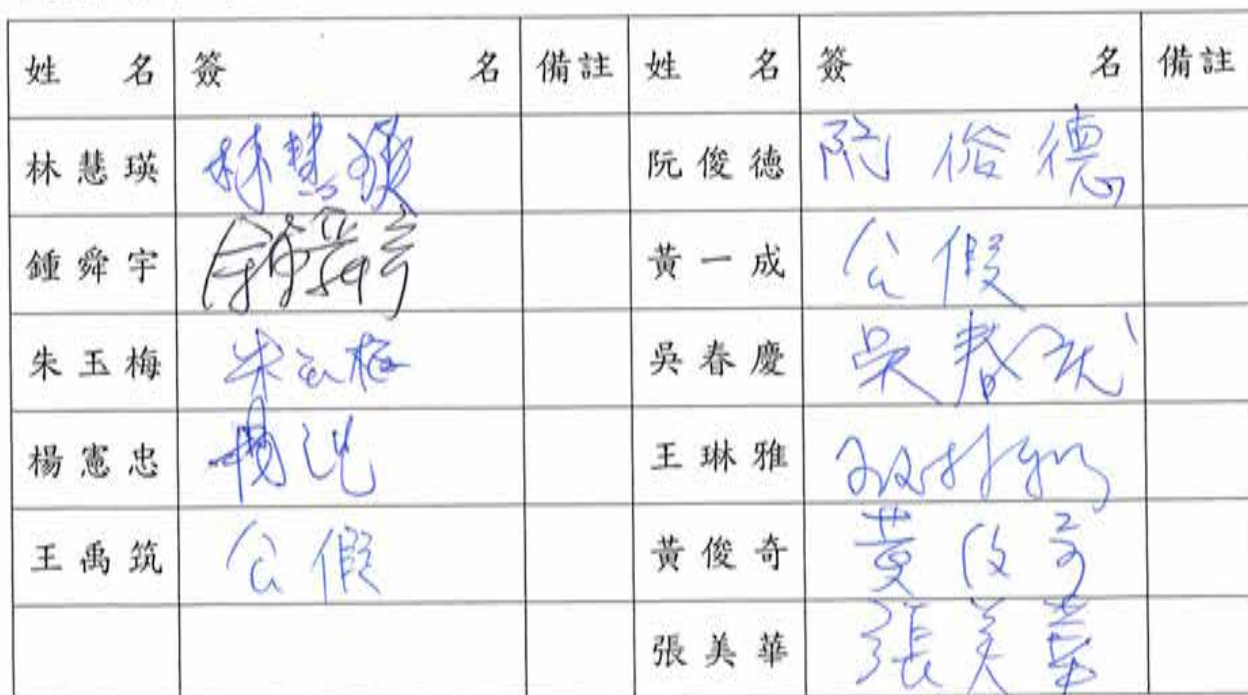 姓名 簽名 備註 姓名 簽名 備註
林慧瑛 林慧瑛 阮俊德 阮俊德
鍾舜宇 鍾舜宇 黃一成 公假
朱玉梅 朱玉梅 吳春慶 吳春慶
楊憲忠 王琳雅 王琳雅
王禹筑 公假 黃俊奇 黃俊奇
張美華 張美華